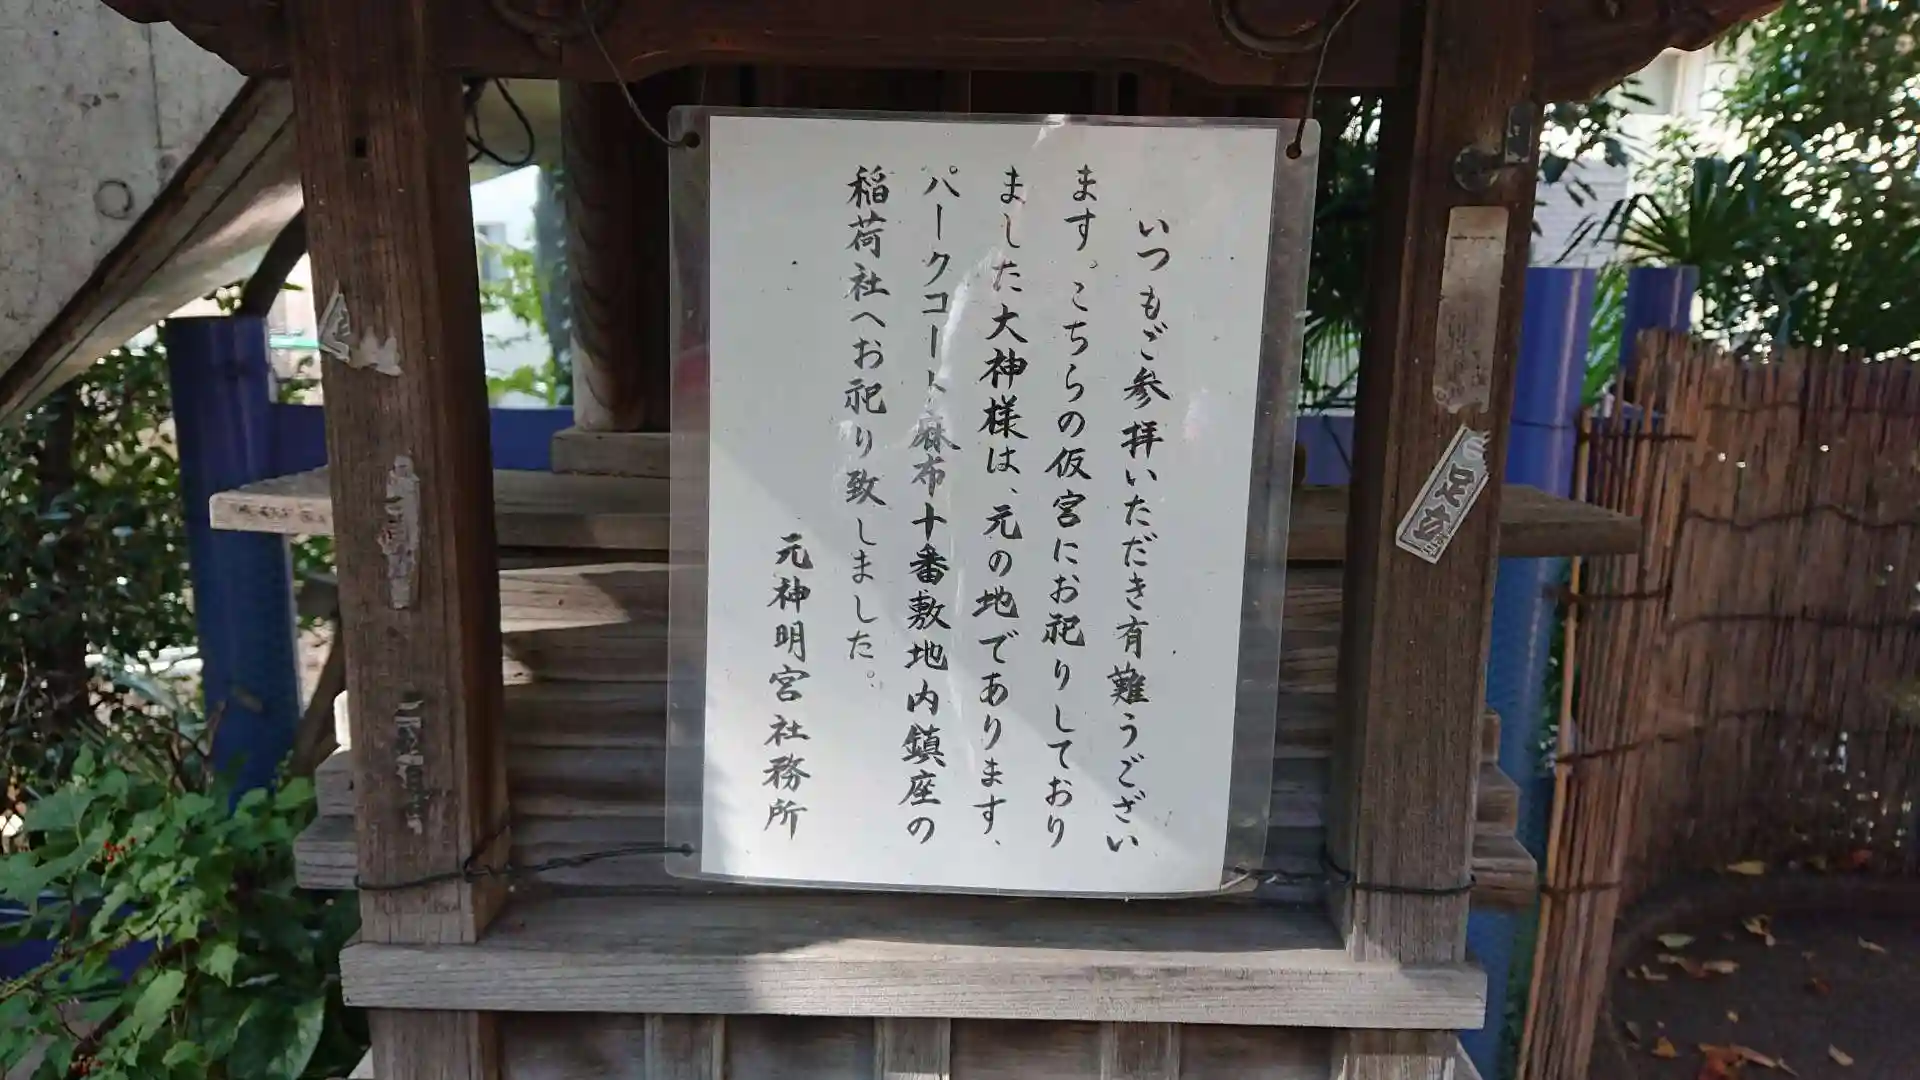 いつもご参拝いただき有難うござい
ます。こちらの仮宮にお祀りしており
ました大神様は、元の地であります、
パークコート麻布十番敷地内鎮座の
稲荷社へお祀り致しました。
元神明宮社務所
足立